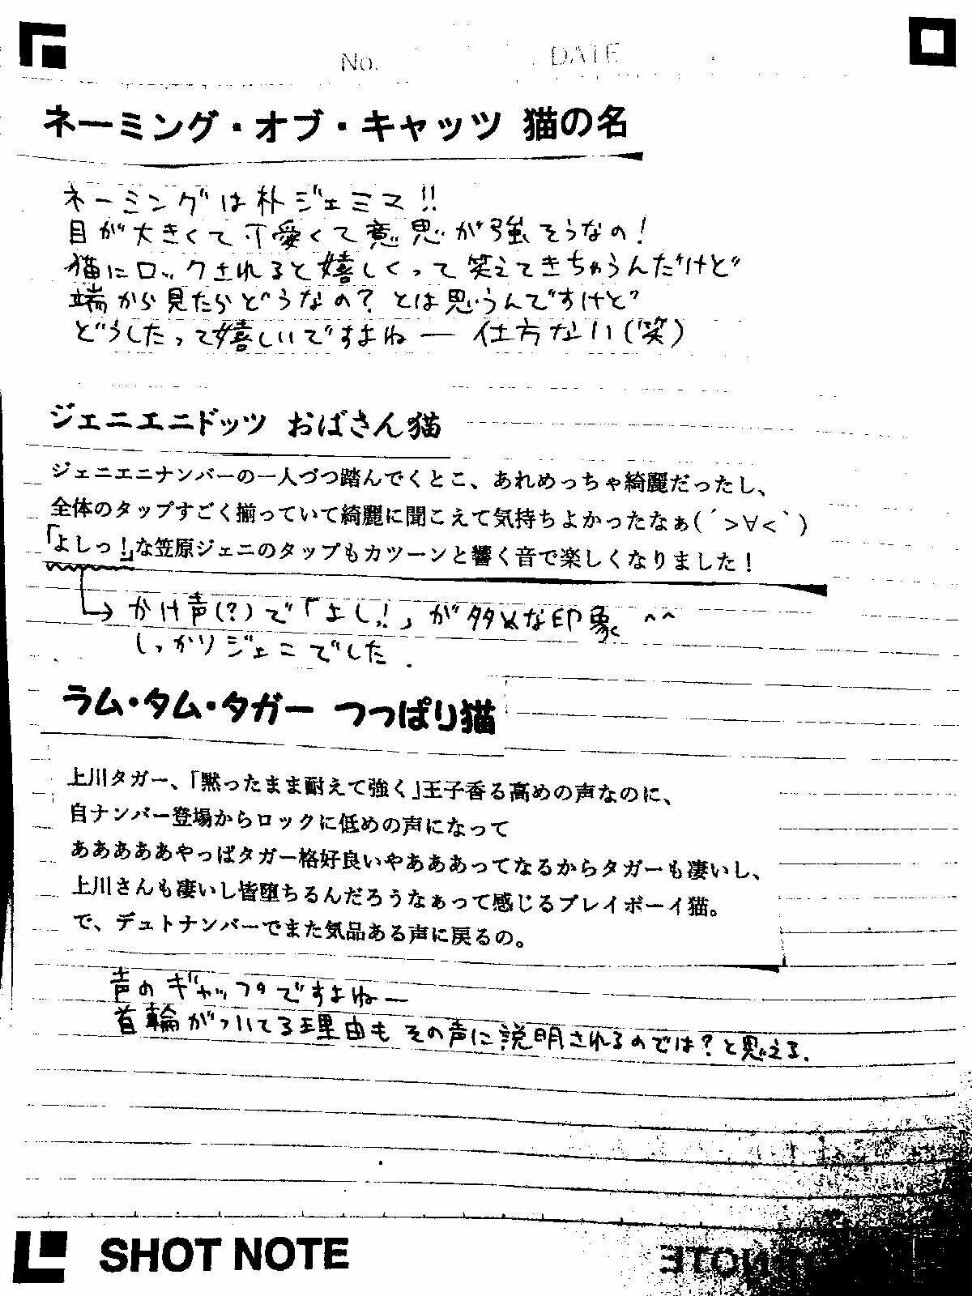 No. DATE
ネーミング・オブ・キャッツ 猫の名
ネーミングは朴ジェミマ!!
目が大きくて可愛くて意思が強そうなの!
猫にロックされると嬉しくって笑えてきちゃうんだけど
端から見たらどうなの? とは思うんですけど
どうしたって嬉しいですよね― 仕方ない(笑)
ジェニエニドッツ おばさん猫
ジェニエニナンバーの一人づつ踏んでくとこ、あれめっちゃ綺麗だったし、
全体のタップすごく揃っていて綺麗に聞こえて気持ちよかったなぁ(´>∀<`)
「よしっ!」な笠原ジェニのタップもカツーンと響く音で楽しくなりました!
かけ声(?)で「よし!」が多めな印象 ^^
しっかりジェニでした.
ラム・タム・タガー つっぱり猫
上川タガー、「黙ったまま耐えて強く」王子香る高めの声なのに、
自ナンバー登場からロックに低めの声になって
あああああやっぱタガー格好良いやあああってなるからタガーも凄いし、
上川さんも凄いし皆堕ちるんだろうなぁって感じるプレイボーイ猫。
で、デュトナンバーでまた気品ある声に戻るの。
声のギャップですよね―
首輪がついてる理由も その声に説明されるのでは? と思える.
SHOT NOTE